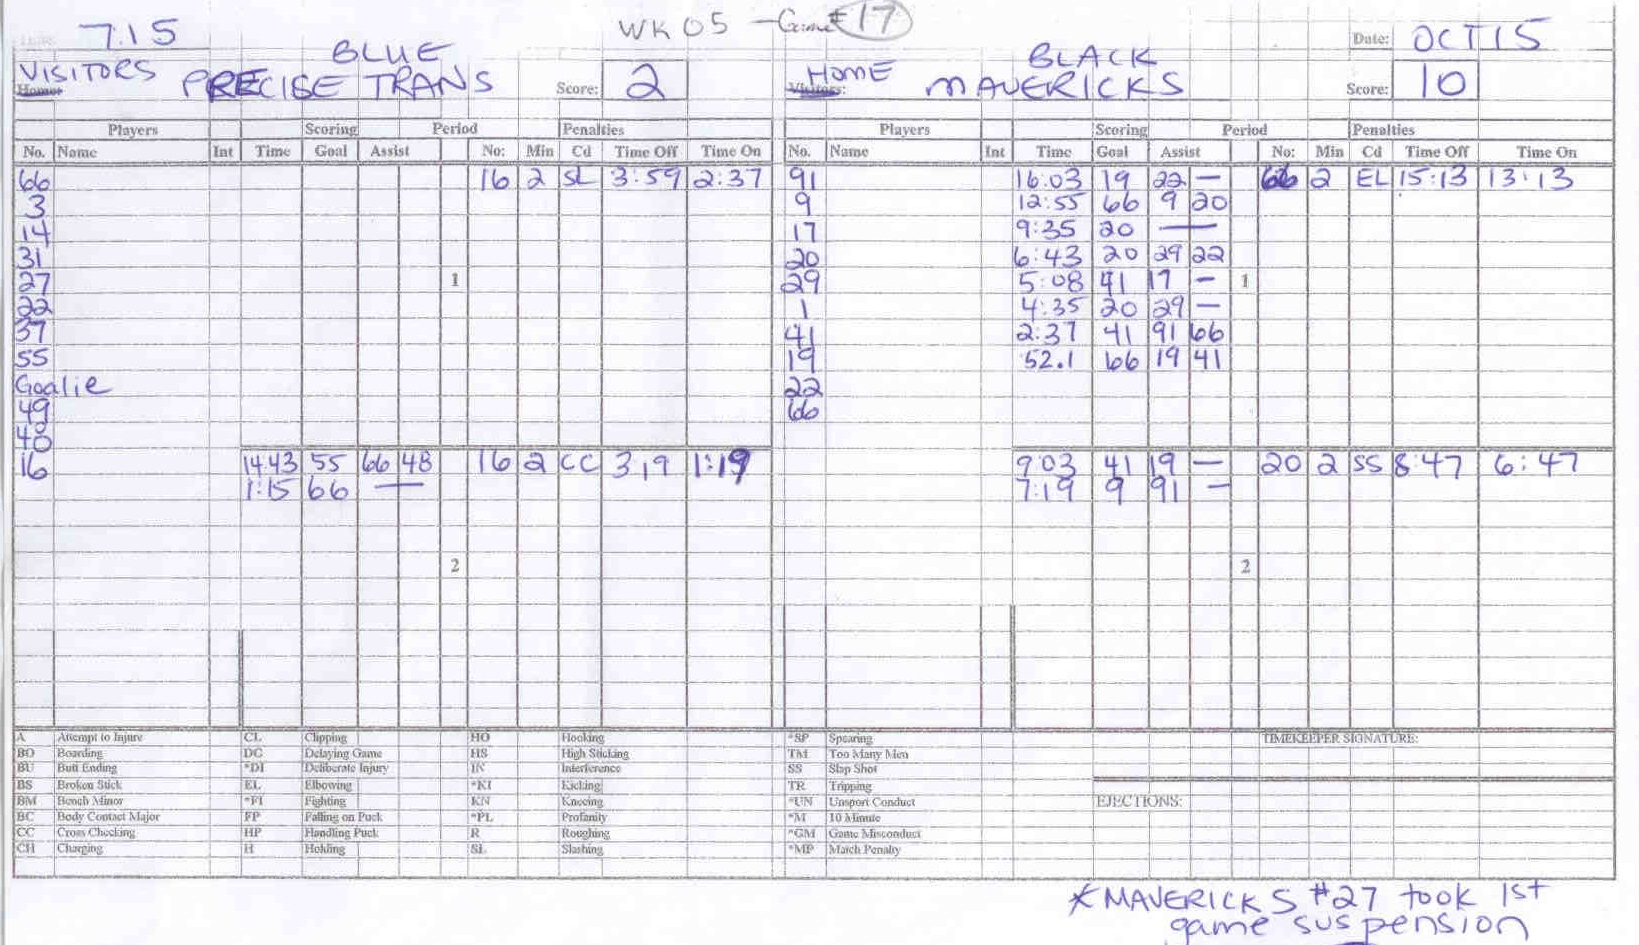 7:15 WK 05 - Game # 17 Date: OCT 15
VISITORS BLUE HOME BLACK
Home: PRECISE TRANS Score: 2 Visitors: MAVERICKS Score: 10
Players Scoring Period Penalties Players Scoring Period Penalties
No. Name Int Time Goal Assist No: Min Cd Time Off Time On No. Name Int Time Goal Assist No: Min Cd Time Off Time On
66 16 2 SL 3:59 2:37 91 16:03 19 22 — 66 2 EL 15:13 13:13
3 9 12:55 66 9 20
14 17 9:35 20 —
31 20 6:43 20 29 22
27 1 29 5:08 41 17 - 1
22 1 4:35 20 29 -
37 41 2:37 41 91 66
55 19 52.1 66 19 41
Goalie 22
49 66
40
16 14:43 55 66 48 16 2 CC 3,19 1:19 9:03 41 19 — 20 2 SS 8:47 6:47
1:15 66 — 7:19 9 91 -
2 2
A Attempt to Injure CL Clipping HO Hooking *SP Spearing TIMEKEEPER SIGNATURE:
BO Boarding DG Delaying Game HS High Sticking TM Too Many Men
BU Butt Ending *DI Deliberate Injury IN Interference SS Slap Shot
BS Broken Stick EL Elbowing *KI Kicking TR Tripping
BM Bench Minor *FI Fighting KN Kneeing *UN Unsport Conduct EJECTIONS:
BC Body Contact Major FP Falling on Puck *PL Profanity *M 10 Minute
CC Cross Checking HP Handling Puck R Roughing *GM Game Misconduct
CH Charging H Holding SL Slashing *MP Match Penalty
*MAVERICKS #27 took 1st
game suspension